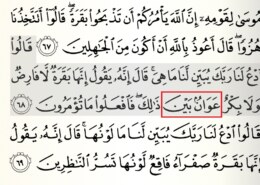 مُوسَىٰ لِقَوْمِهِۦٓ إِنَّ ٱللَّهَ يَأْمُرُكُمْ أَن تَذْبَحُوا۟ بَقَرَةً ۖ قَالُوٓا۟ أَتَتَّخِذُنَا
هُزُوًا ۖ قَالَ أَعُوذُ بِٱللَّهِ أَنْ أَكُونَ مِنَ ٱلْجَٰهِلِينَ ٦٧ قَالُوا۟
ٱدْعُ لَنَا رَبَّكَ يُبَيِّن لَّنَا مَا هِىَ ۚ قَالَ إِنَّهُۥ يَقُولُ إِنَّهَا بَقَرَةٌ لَّا فَارِضٌ
وَلَا بِكْرٌ عَوَانٌۢ بَيْنَ ذَٰلِكَ ۖ فَٱفْعَلُوا۟ مَا تُؤْمَرُونَ ٦٨
قَالُوا۟ ٱدْعُ لَنَا رَبَّكَ يُبَيِّن لَّنَا مَا لَوْنُهَا ۚ قَالَ إِنَّهُۥ يَقُولُ
إِنَّهَا بَقَرَةٌ صَفْرَآءُ فَاقِعٌ لَّوْنُهَا تَسُرُّ ٱلنَّٰظِرِينَ ٦٩